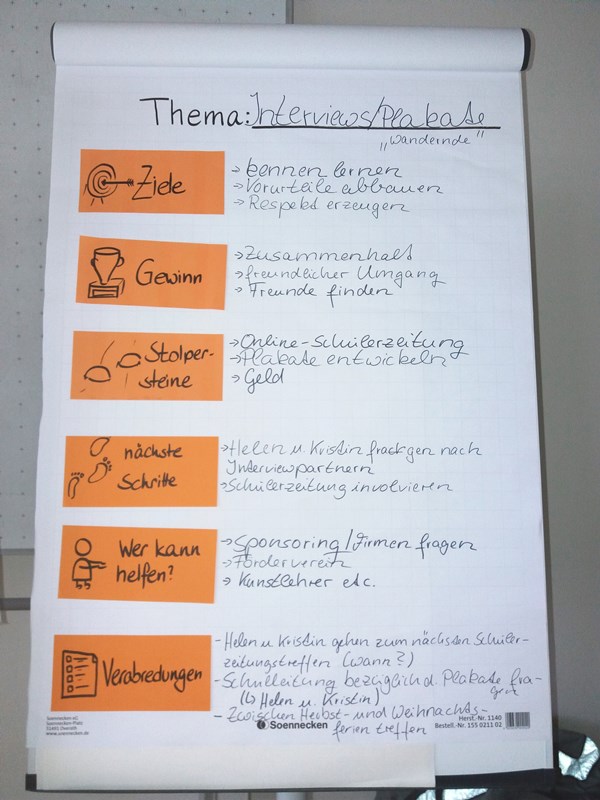 Thema: Interviews/Plakate
„Wandernde"
Ziele
→ kennen lernen
→ Vorurteile abbauen
→ Respekt erzeugen
Gewinn
→ Zusammenhalt
→ freundlicher Umgang
→ Freunde finden
Stolper-
steine
→ Online-Schülerzeitung
→ Plakate entwickeln
→ Geld
nächste
Schritte
→ Helen u. Kristin fragen nach
Interviewpartnern
→ Schülerzeitung involvieren
Wer kann
helfen?
→ Sponsoring/Firmen fragen
→ Förderverein
→ Kunstlehrer etc.
Verabredungen
- Helen u Kristin gehen zum nächsten Schüler-
zeitungstreffen (wann?)
- Schulleitung bezüglich d. Plakate fra-
(↳ Helen u. Kristin)
- Zwischen Herbst- und Weihnachts-
ferien treffen
Soennecken eG
Soennecken-Platz
51491 Overath
www.soennecken.de
Soennecken
Herst.-Nr. 1140
Bestell.-Nr. 155 0211 02